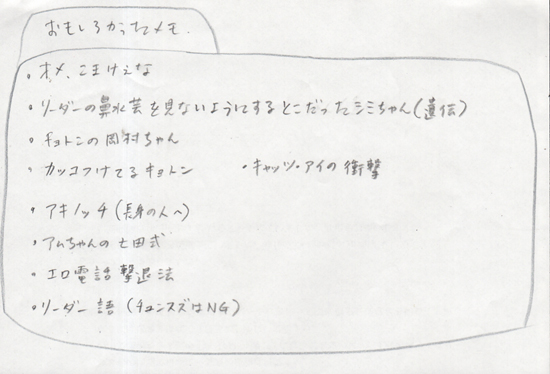 おもしろかったメモ.
・オメ、こまけえな
・リーダーの鼻水芸を見ないようにするとこだったシミちゃん(遺伝)
・チョトンの岡村ちゃん
・カッコつけてるキョトン ・キャッツ・アイの衝撃
・アキノッチ(長身の人へ)
・アムちゃんの七田式
・エロ電話撃退法
・リーダー語(チュンスズはNG)